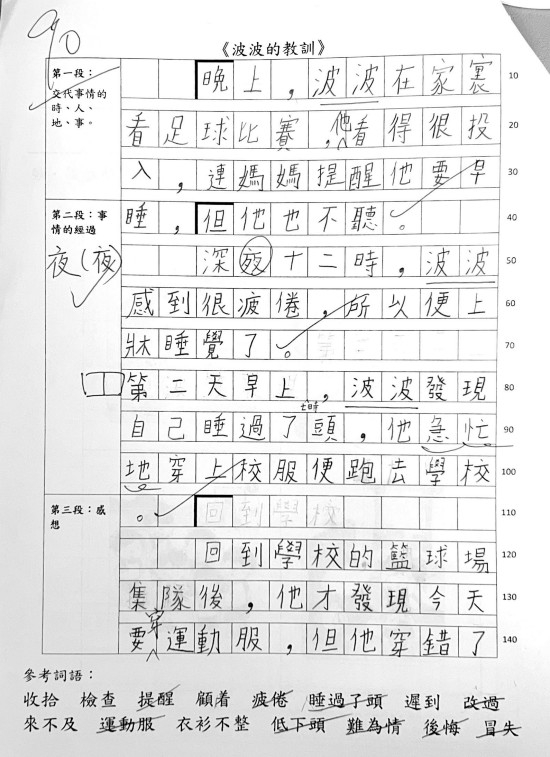 90
《波波的教訓》
第一段：
交代事情的
時、人、
地、事。
晚上，波波在家裏
10
看足球比賽，他看得很投
20
入，連媽媽提醒他要早
30
第二段：事
情的經過
睡，但他也不聽。
40
夜（夜）
深夜十二時，波波
50
感到很疲倦，所以便上
60
牀睡覺了。
70
第二天早上，波波發現
80
自己睡過了頭，他急忙
90
地穿上校服便跑去學校
100
第三段：感
想
。回到學校
110
回到學校的籃球場
120
集隊後，他才發現今天
130
要穿運動服，但他穿錯了
140
參考詞語：
收拾 檢查 提醒 顧着 疲倦 睡過了頭 遲到 改過
來不及 運動服 衣衫不整 低下頭 難為情 後悔 冒失